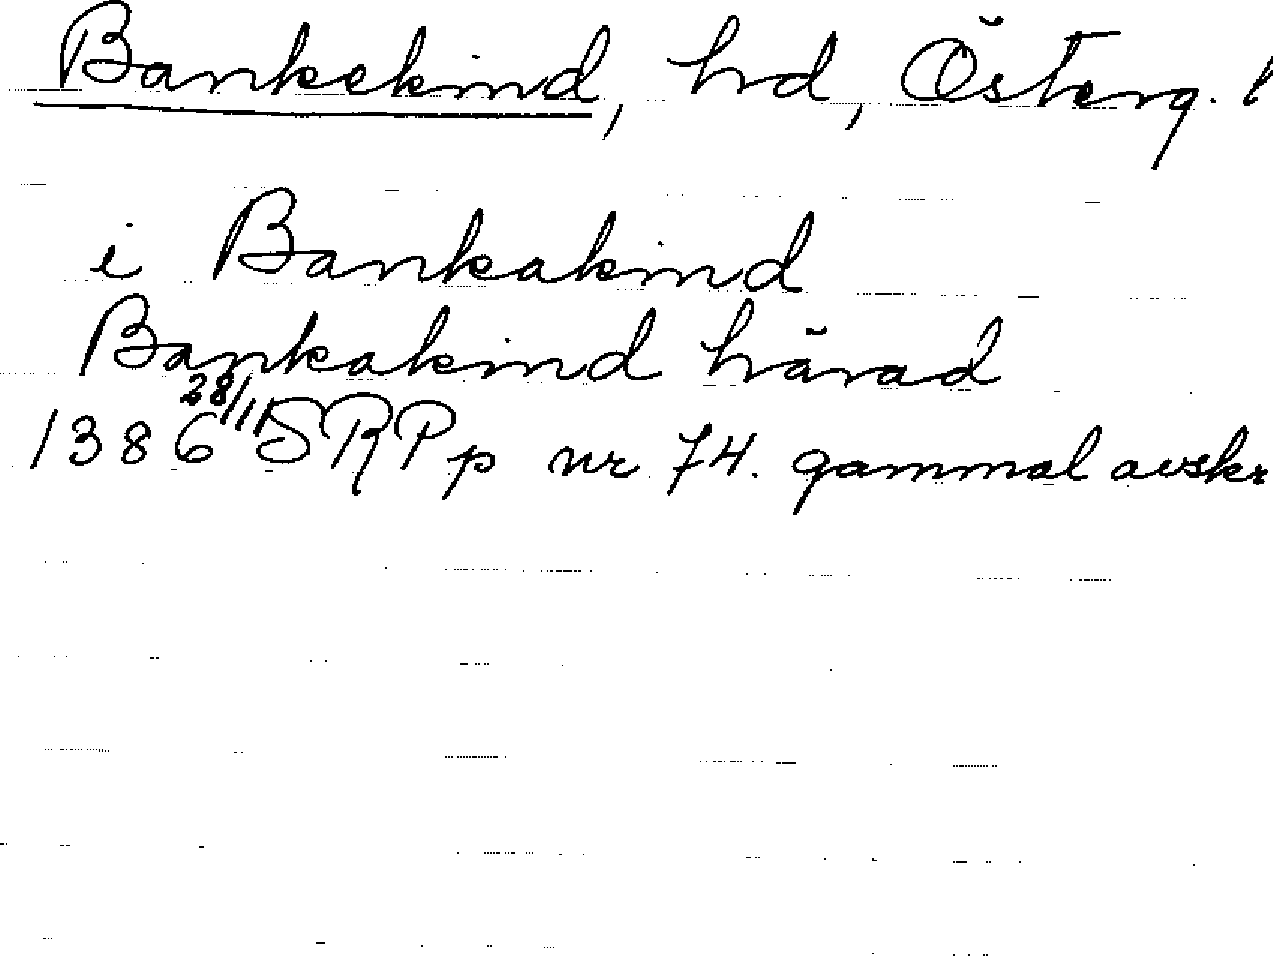 Bankekind, hd, Österg. l
i Bankakind
Bankakind härad
1386 28/11 SRPp nr 74. gammal avskr